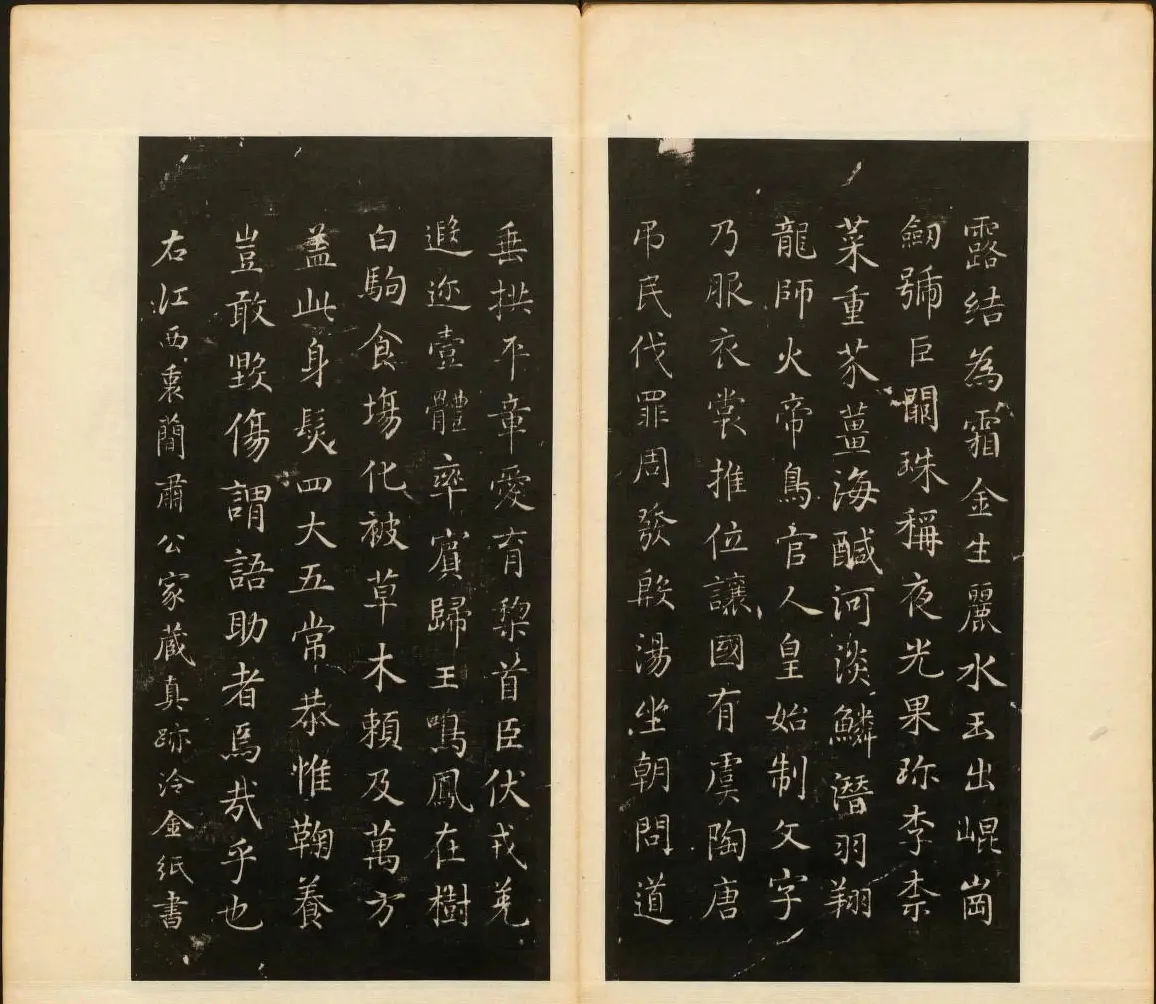 露結為霜金生麗水玉出崐崗
劒號巨闕珠稱夜光果珎李柰
菜重芥薑海醎河淡鱗潛羽翔
龍師火帝鳥官人皇始制文字
乃服衣裳推位讓國有虞陶唐
弔民伐罪周發殷湯坐朝問道
垂拱平章愛育黎首臣伏戎羌
遐迩壹體率賓歸王鳴鳳在樹
白駒食塲化被草木賴及萬方
盖此身髮四大五常恭惟鞠養
豈敢毀傷謂語助者焉哉乎也
右江西袁蘭肅公家蔵真跡冷金紙書